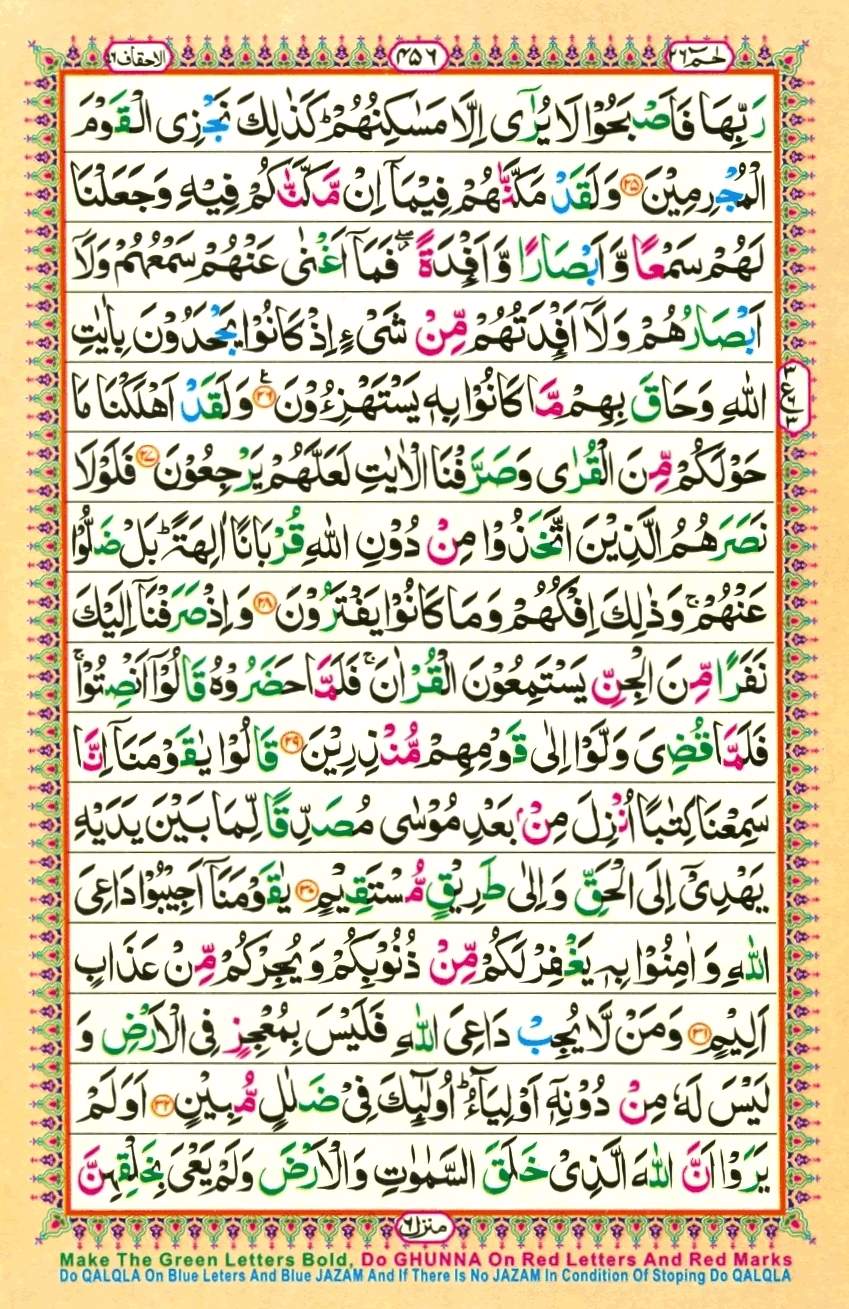 الاحقاف ٤٦
٤٥٦
حٰمٓ ٢٦
رَبِّهَا فَاَصْبَحُوْا لَا يُرٰٓى اِلَّا مَسٰكِنُهُمْ ؕ كَذٰلِكَ نَجْزِى الْقَوْمَ
الْمُجْرِمِيْنَ ﴿۲۵﴾ وَلَقَدْ مَكَّنّٰهُمْ فِيْمَاۤ اِنْ مَّكَّنّٰكُمْ فِيْهِ وَجَعَلْنَا
لَهُمْ سَمْعًا وَّ اَبْصَارًا وَّ اَفْـِٕدَةً ۖ فَمَاۤ اَغْنٰى عَنْهُمْ سَمْعُهُمْ وَلَاۤ
اَبْصَارُهُمْ وَلَاۤ اَفْـِٕدَتُهُمْ مِّنْ شَىْءٍ اِذْ كَانُوْا يَجْحَدُوْنَ بِاٰيٰتِ
اللّٰهِ وَحَاقَ بِهِمْ مَّا كَانُوْا بِهٖ يَسْتَهْزِءُوْنَ ﴿۲۶﴾ وَلَقَدْ اَهْلَكْنَا مَا
حَوْلَكُمْ مِّنَ الْقُرٰى وَصَرَّفْنَا الْاٰيٰتِ لَعَلَّهُمْ يَرْجِعُوْنَ ﴿۲۷﴾ فَلَوْلَا
نَصَرَهُمُ الَّذِيْنَ اتَّخَذُوْا مِنْ دُوْنِ اللّٰهِ قُرْبَانًا اٰلِهَةً ؕ بَلْ ضَلُّوْا
عَنْهُمْ ۚ وَذٰلِكَ اِفْكُهُمْ وَمَا كَانُوْا يَفْتَرُوْنَ ﴿۲۸﴾ وَاِذْ صَرَفْنَاۤ اِلَيْكَ
نَفَرًا مِّنَ الْجِنِّ يَسْتَمِعُوْنَ الْقُرْاٰنَ ۚ فَلَمَّا حَضَرُوْهُ قَالُوْۤا اَنْصِتُوْا ۚ
فَلَمَّا قُضِىَ وَلَّوْا اِلٰى قَوْمِهِمْ مُّنْذِرِيْنَ ﴿۲۹﴾ قَالُوْا يٰقَوْمَنَاۤ اِنَّا
سَمِعْنَا كِتٰبًا اُنْزِلَ مِنْۢ بَعْدِ مُوْسٰى مُصَدِّقًا لِّمَا بَيْنَ يَدَيْهِ
يَهْدِىْۤ اِلَى الْحَقِّ وَاِلٰى طَرِيْقٍ مُّسْتَقِيْمٍ ﴿۳۰﴾ يٰقَوْمَنَاۤ اَجِيْبُوْا دَاعِىَ
اللّٰهِ وَ اٰمِنُوْا بِهٖ يَغْفِرْ لَكُمْ مِّنْ ذُنُوْبِكُمْ وَيُجِرْكُمْ مِّنْ عَذَابٍ
اَلِيْمٍ ﴿۳۱﴾ وَمَنْ لَّا يُجِبْ دَاعِىَ اللّٰهِ فَلَيْسَ بِمُعْجِزٍ فِى الْاَرْضِ وَ
لَيْسَ لَهٗ مِنْ دُوْنِهٖۤ اَوْلِيَآءُ ؕ اُولٰٓئِكَ فِىْ ضَلٰلٍ مُّبِيْنٍ ﴿۳۲﴾ اَوَلَمْ
يَرَوْا اَنَّ اللّٰهَ الَّذِىْ خَلَقَ السَّمٰوٰتِ وَالْاَرْضَ وَلَمْ يَعْىَ بِخَلْقِهِنَّ
منزل ٦
Make The Green Letters Bold, Do GHUNNA On Red Letters And Red Marks
Do QALQLA On Blue Leters And Blue JAZAM And If There Is No JAZAM In Condition Of Stoping Do QALQLA